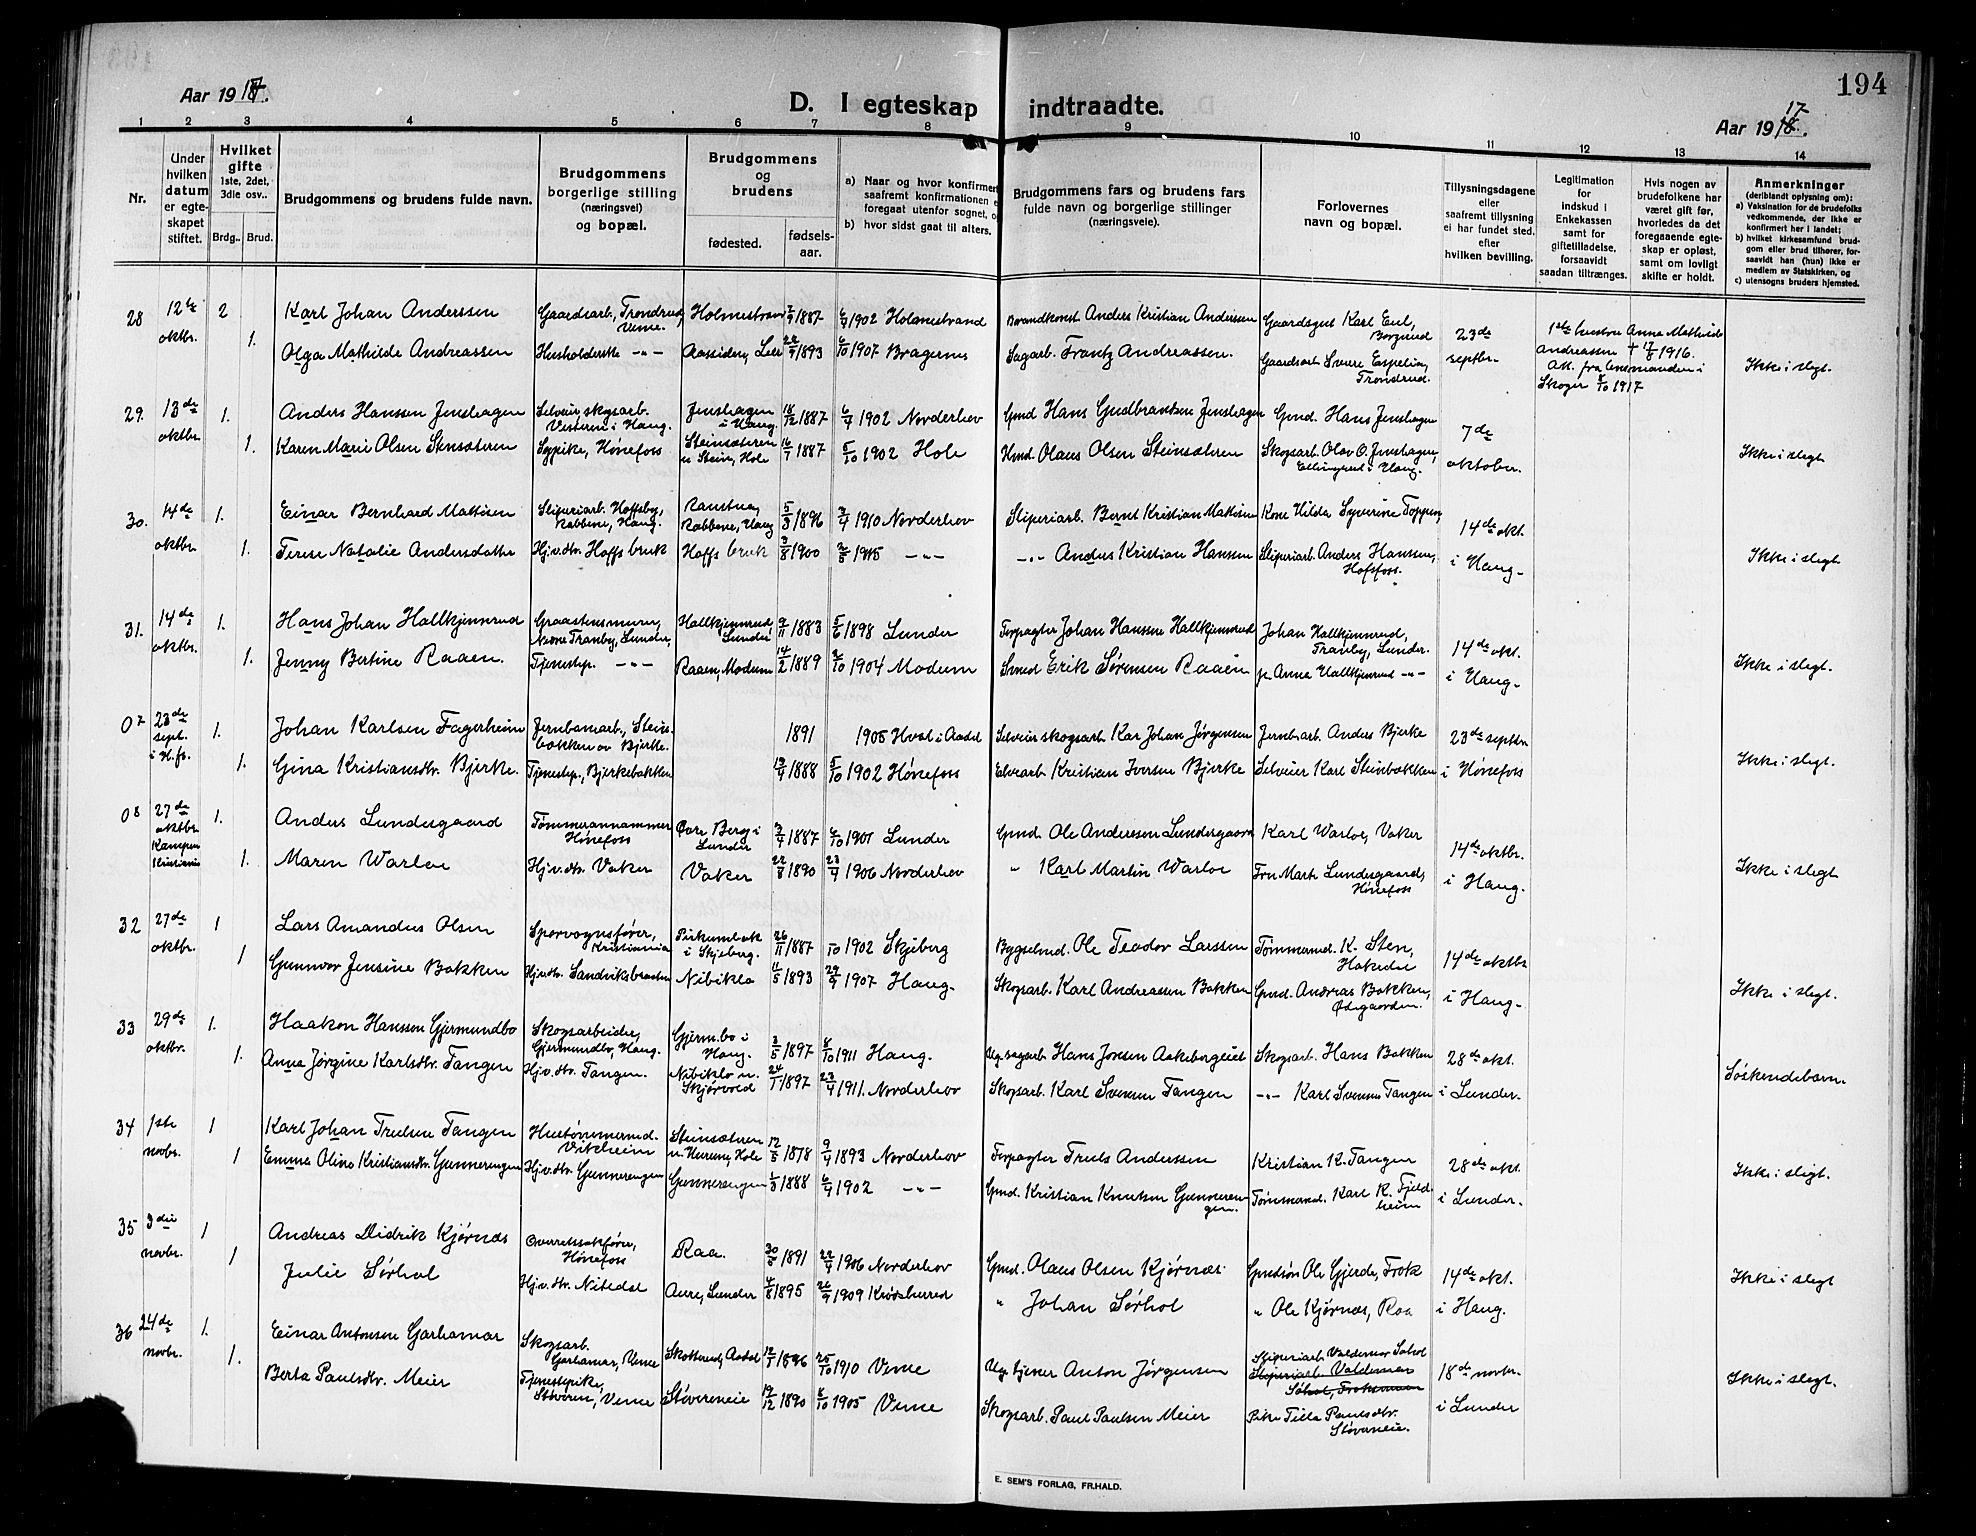 194
Aar 1917.
D. I egteskap indtraadte.
17
Aar 1918.
1 2 3 4 5 6 7 8 9 10 11 12 13 14
Nr.
Under hvilken datum er egteskapet stiftet.
Hvilket gifte 1ste, 2det, 3die osv..
Brdg. Brud.
Brudgommens og brudens fulde navn.
Brudgommens borgerlige stilling (næringsvei) og bopæl.
Brudgommens og brudens
fødested. fødselsaar.
a) Naar og hvor konfirmert
saafremt konfirmationen e
foregaat utenfor sognet, o
b) hvor sidst gaat til alters.
Brudgommens fars og brudens fars
fulde navn og borgerlige stillinger
(næringsveie).
Forlovernes
navn og bopæl.
Tillysningsdagene
eller
saafremt tillysning
ei har fundet sted.
efter
hvilken bevilling.
Legitimation
for
indskud i
Enkekassen
samt for
giftetilladelse,
forsaavidt
saadan tiltrænges.
Hvis nogen av
brudefolkene har
været gift før,
hvorledes da det
foregaaende egte-
skap er opløst,
samt om lovligt
skifte er holdt.
Anmerkninger
(deriblandt oplysning om):
a) Vaksination for de brudefolks
vedkommende, der ikke er
konfirmert her i landet;
b) hvilket kirkesamfund brud-
gom eller brud tilhører, for-
saavidt han (hun) ikke er
medlem av Statskirken, og
c) utensogns bruders hjemsted.
28 12te oktbr. 2 Karl Johan Anderssen Gaardsarb., Trondrud, Veme. Holmestrand 7/9 1887 6/4 1902 Holmestrand Brandkonst Anders Kristian Anderssen Gaardsgut Karl Eul, Borgerud 23de septbr. 1ste hustru Anna Mathilde Andreassen † 17/8 1916. Att. fra lensmanden i Skoger 8/10 1917
1. Olga Mathilde Andreassen Husholderske -"- Aassiden, Lier 22/4 1893 6/10 1907 Bragernes Sagarb. Frantz Andreassen. Gaardsarb Sverre Espelien, Trondrud. Ikke i slegt.
29. 13de oktbr. 1. Anders Hanssen Jenshagen Selveier, skogsarb. Vesteren i Haug. Jenshagen i Haug. 18/12 1887 6/4 1902 Norderhov Gmd Hans Gudbrandsen Jenshagen Gmd. Hans Jenshagen 7de oktober.
1. Karen Marie Olsen Stensæteren Sypike, Hønefoss Steinsæteren u. Stein, Hole 16/7 1887 5/10 1902 Hole Hmd. Olaus Olsen Steinsæteren Skogsarb. Olav O. Jenshagen, Ellingsrud i Haug. Ikke i slegt.
30. 14de oktbr. 1. Einar Bernhard Mattisen Sliperiarb. Hoffsby, Rabbene, Haug. Ramstuen, Rabbene, Haug 5/3 1896 3/4 1910 Norderhov Sliperiarb. Bernt Kristian Mattisen Kone Hilda Syverine Toppen, 14de okt. i Haug.
1. Terese Natalie Andersdatter Hj.v.dtr. Hoffs bruk Hoffs bruk 3/8 1900 2/5 1915 -"- -"- Anders Kristian Hanssen Sliperiarb. Anders Hanssen, Hofsfoss. Ikke i slegt
31. 14de oktbr. 1. Hans Johan Hallkjennrud Graastensmurer, Nedre Tranby, Lunder, Hallkjennrud, Lunder 9/11 1883 5/6 1898 Lunder Forpagter Johan Hanssen Hallkjennrud Johan Hallkjennrud, Tranby, Lunder. 14de okt. i Haug.
1. Jenny Bertine Raaen. Tjenestep. -"- Raaen, Modum 14/2 1889 2/10 1904 Modum Smed Erik Sørensen Raaen p. Anna Hallkjennrud -"- Ikke i slegt.
07 23de sept. i H.fs. 1. Johan Karlsen Fagerheim Jernbanearb., Steinsbakken ov Bjerke. 1891 1905 Hval i Aadal Selveier skogsarb Kar Johan Jørgensen Jernb.arb. Anders Bjerke 23de septbr i Hønefoss
1. Gina Kristiansdtr. Bjerke. Tjenestep., Bjerkebakken 13/4 1888 5/10 1902 Hønefoss Elvearb. Kristian Iversen Bjerke Selveier Karl Steinbakken Ikke i slegt.
08 27de oktbr. Kampen Kristiania 1. Anders Lundesgaard Tømmerannammer Hønefoss Øvre Berg i Lunder 3/4 1887 6/10 1901 Lunder Gmd. Ole Anderssen Lundesgaard Karl Warloe, Vaker 14de oktbr. i Haug.
1. Maren Warloe Hj.v.dtr. Vaker Vaker 22/8 1890 23/4 1906 Norderhov " Karl Martin Warloe Fru Marta Lundesgaard, Hønefoss Ikke i slegt
32 27de oktbr. 1 Lars Amandus Olsen Sporvognsfører, Kristiania i Skjeberg. 26/11 1887 /10 1902 Skjeberg Bygselmd. Ole Teodor Larssen Tømmermd. K. Sten, Hakedal 14de oktbr i Haug.
1 Gunnvor Jensine Bakken Hj.v.dtr. Sandviksbraaten Nibikla 11/5 1893 29/9 1907 Haug. Skogsarb. Karl Andreassen Bakken Gmd. Andreas Bakken, Ødegaarden. Ikke i slegt.
33 29de oktbr. 1. Haakon Hanssen Gjermundbo Skogsarbeider, Gjermundbo, Haug. Gjerm.bo i Haug. 3/5 1897 8/10 1911 Haug. Hans Jonsen Aakeborgeiet Skogsarb. Hans Bakken 28de okt. i Lunder.
1. Anna Jørgine Karlsdtr. Tangen Hj.v.dtr. Tangen. Nibikla u. Skjørvold 24/1 1897 23/4 1911. Norderhov Skogsarb. Karl Svensen Tangen -"- Karl Svensen Tangen Søskendebarn.
34 1ste novbr. 1 Karl Johan Trulsen Tangen Hustømmermd. Vikheim Steinsæteren u. Hurum, Hole 12/5 1878 9/4 1893 Norderhov Forpagter Truls Anderssen Kristian K. Tangen 28de okt. i Lunder.
1 Emma Oline Kristiansdtr. Gunnerengen Hj.v.dtr. Gunnerengen Gunnerengen 1/3 1888 6/4 1902 -"- Gmd. Kristian Knutsen Gunnerengen. Tømmermd. Karl K. Fjeldheim Ikke i slegt.
35 3die novbr. 1 Andreas Didrik Kjørnæs Overretssakfører, Hønefoss Raa. 30/5 1891 22/4 1906 Norderhov Gmd. Olaus Olsen Kjørnæs Gmdsøn Ole Gjerde, Frok 14de okt. i Haug.
1 Julie Sørhol Hj.v.dtr. Nitedal Aure, Lunder 4/8 1895 26/9 1909 Krødsherred " Johan Sørhol " Ole Kjørnæs, Raa Ikke i slegt
36 24de novbr. 1. Einar Antonsen Garhamar Skogsarb. Garhamar, Veme Skotterud, Aadal 12/1 1896 25/10 1910 Veme Ug tjener Anton Jørgensen Sliperiarb. Valdemar Sørhol 18de novbr. i Lunder
1. Berta Paulsdtr. Meier Tjenestepike, Støveren, Veme Støvereneie 19/12 1890 8/10 1905 Veme Skogsarb. Paul Paulsen Meier Pike Tilla Paulsdtr. Støverneie. Ikke i slegt.
E. SEM'S FORLAG, FR.HALD.